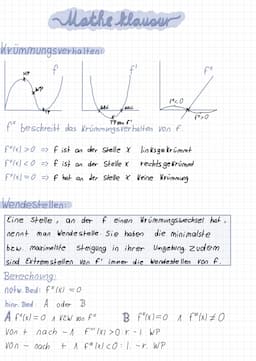 Matheklausur
Krümmungsverhalten:
HP
WP
TP
f
f'
f''
f''<0
f''>0
f'' beschreibt das Krümmungsverhalten von f.
f''(x) > 0 => f ist an der Stelle x linksgekrümmt
f''(x) < 0 => f ist an der Stelle x rechtsgekrümmt
f''(x) = 0 => f hat an der Stelle x keine Krümmung
Wendestellen:
Eine Stelle, an der f einen Krümmungswechsel hat,
nennt man Wendestelle. Sie haben die minimalste
bzw. maximalste Steigung in ihrer Umgebung. Zudem
sind Extremstellen von f' immer die Wendestellen von f.
Berechnung:
notw. Bed: f''(x) = 0
hinr. Bed: A oder B
A f''(x) = 0 ∧ VZW von f'' B f''(x) = 0 ∧ f'''(x) ≠ 0
von + nach - ∧ f'''(x) > 0 r-l WP
von - nach + ∧ f'''(x) < 0 l-r WP